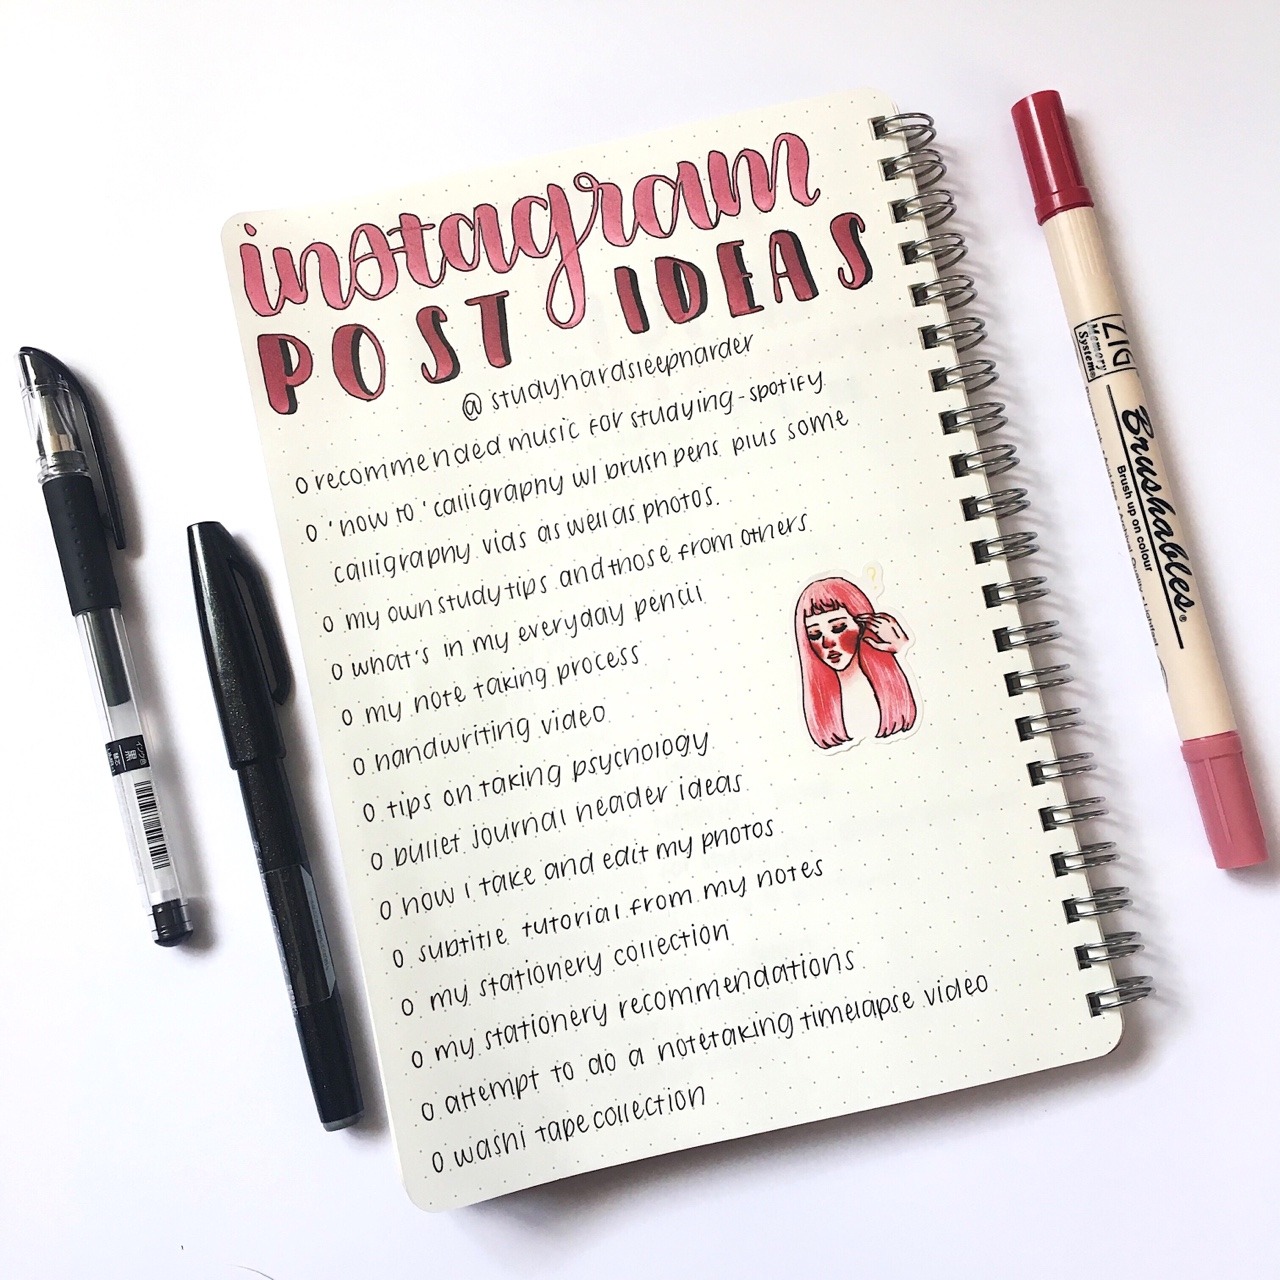 instagram
POST IDEAS
@studyhardsleepharder
o recommended music for studying - spotify
o 'how to' calligraphy w/ brush pens plus some
calligraphy vids as well as photos.
o my own study tips and those from others.
o what's in my everyday pencil
o my note taking process
o handwriting video
o tips on taking psychology
o bullet journal header ideas
o how i take and edit my photos
o subtitle tutorial from my notes
o my stationery collection
o my stationery recommendations
o attempt to do a notetaking timelapse video
o washi tape collection
ZIG
Memory
System®
Brushables®
Brush up on colour
黒